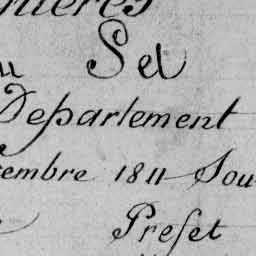 nières
u Sel
Departement
embre 1811 Sou
Prefet